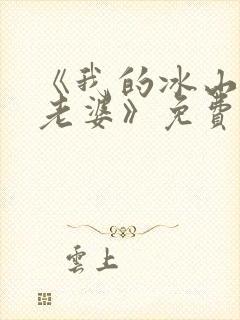 《我的冰山
老婆》免費
雲上